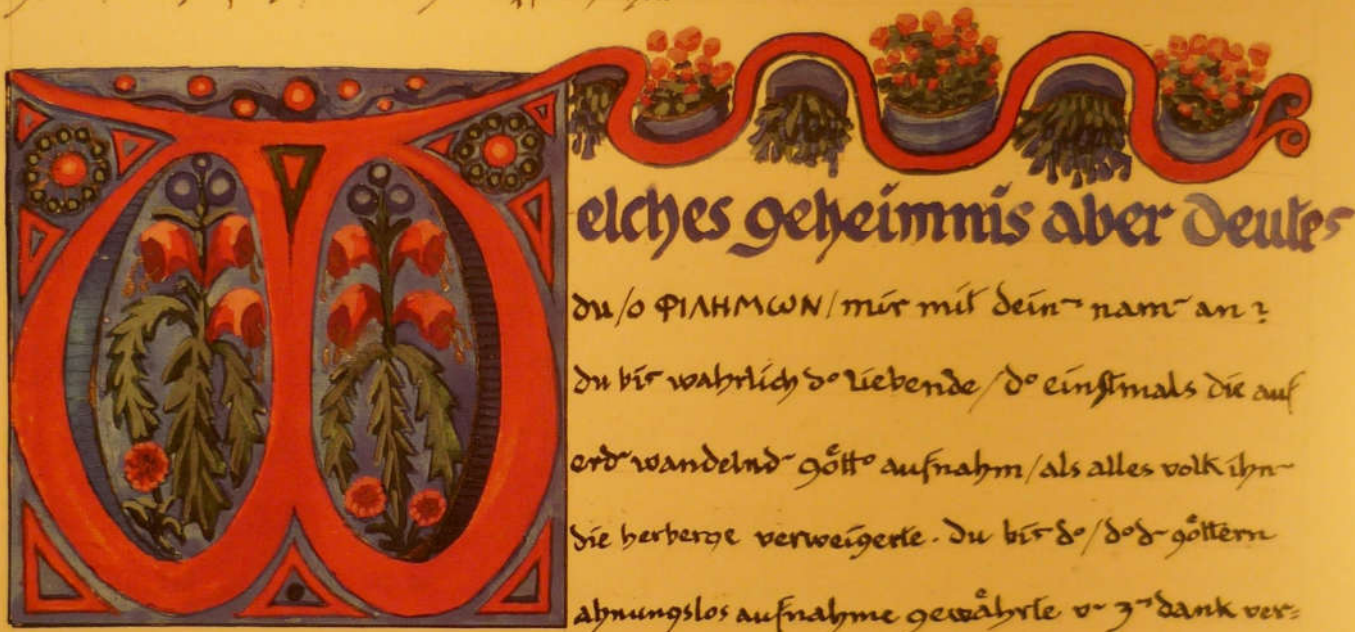 Welches geheimnis aber deutest
du/o ΦΙΛΗΜΩΝ/mir mit dein~ nam~ an?
du bist wahrlich d° liebende/d° einstmals die auf
erd~ wandelnd~ gött° aufnahm/als alles volk ihn~
die herberge verweigerte. du bist d°/d° d~ göttern
ahnungslos aufnahme gewährte v~ z~ dank ver=